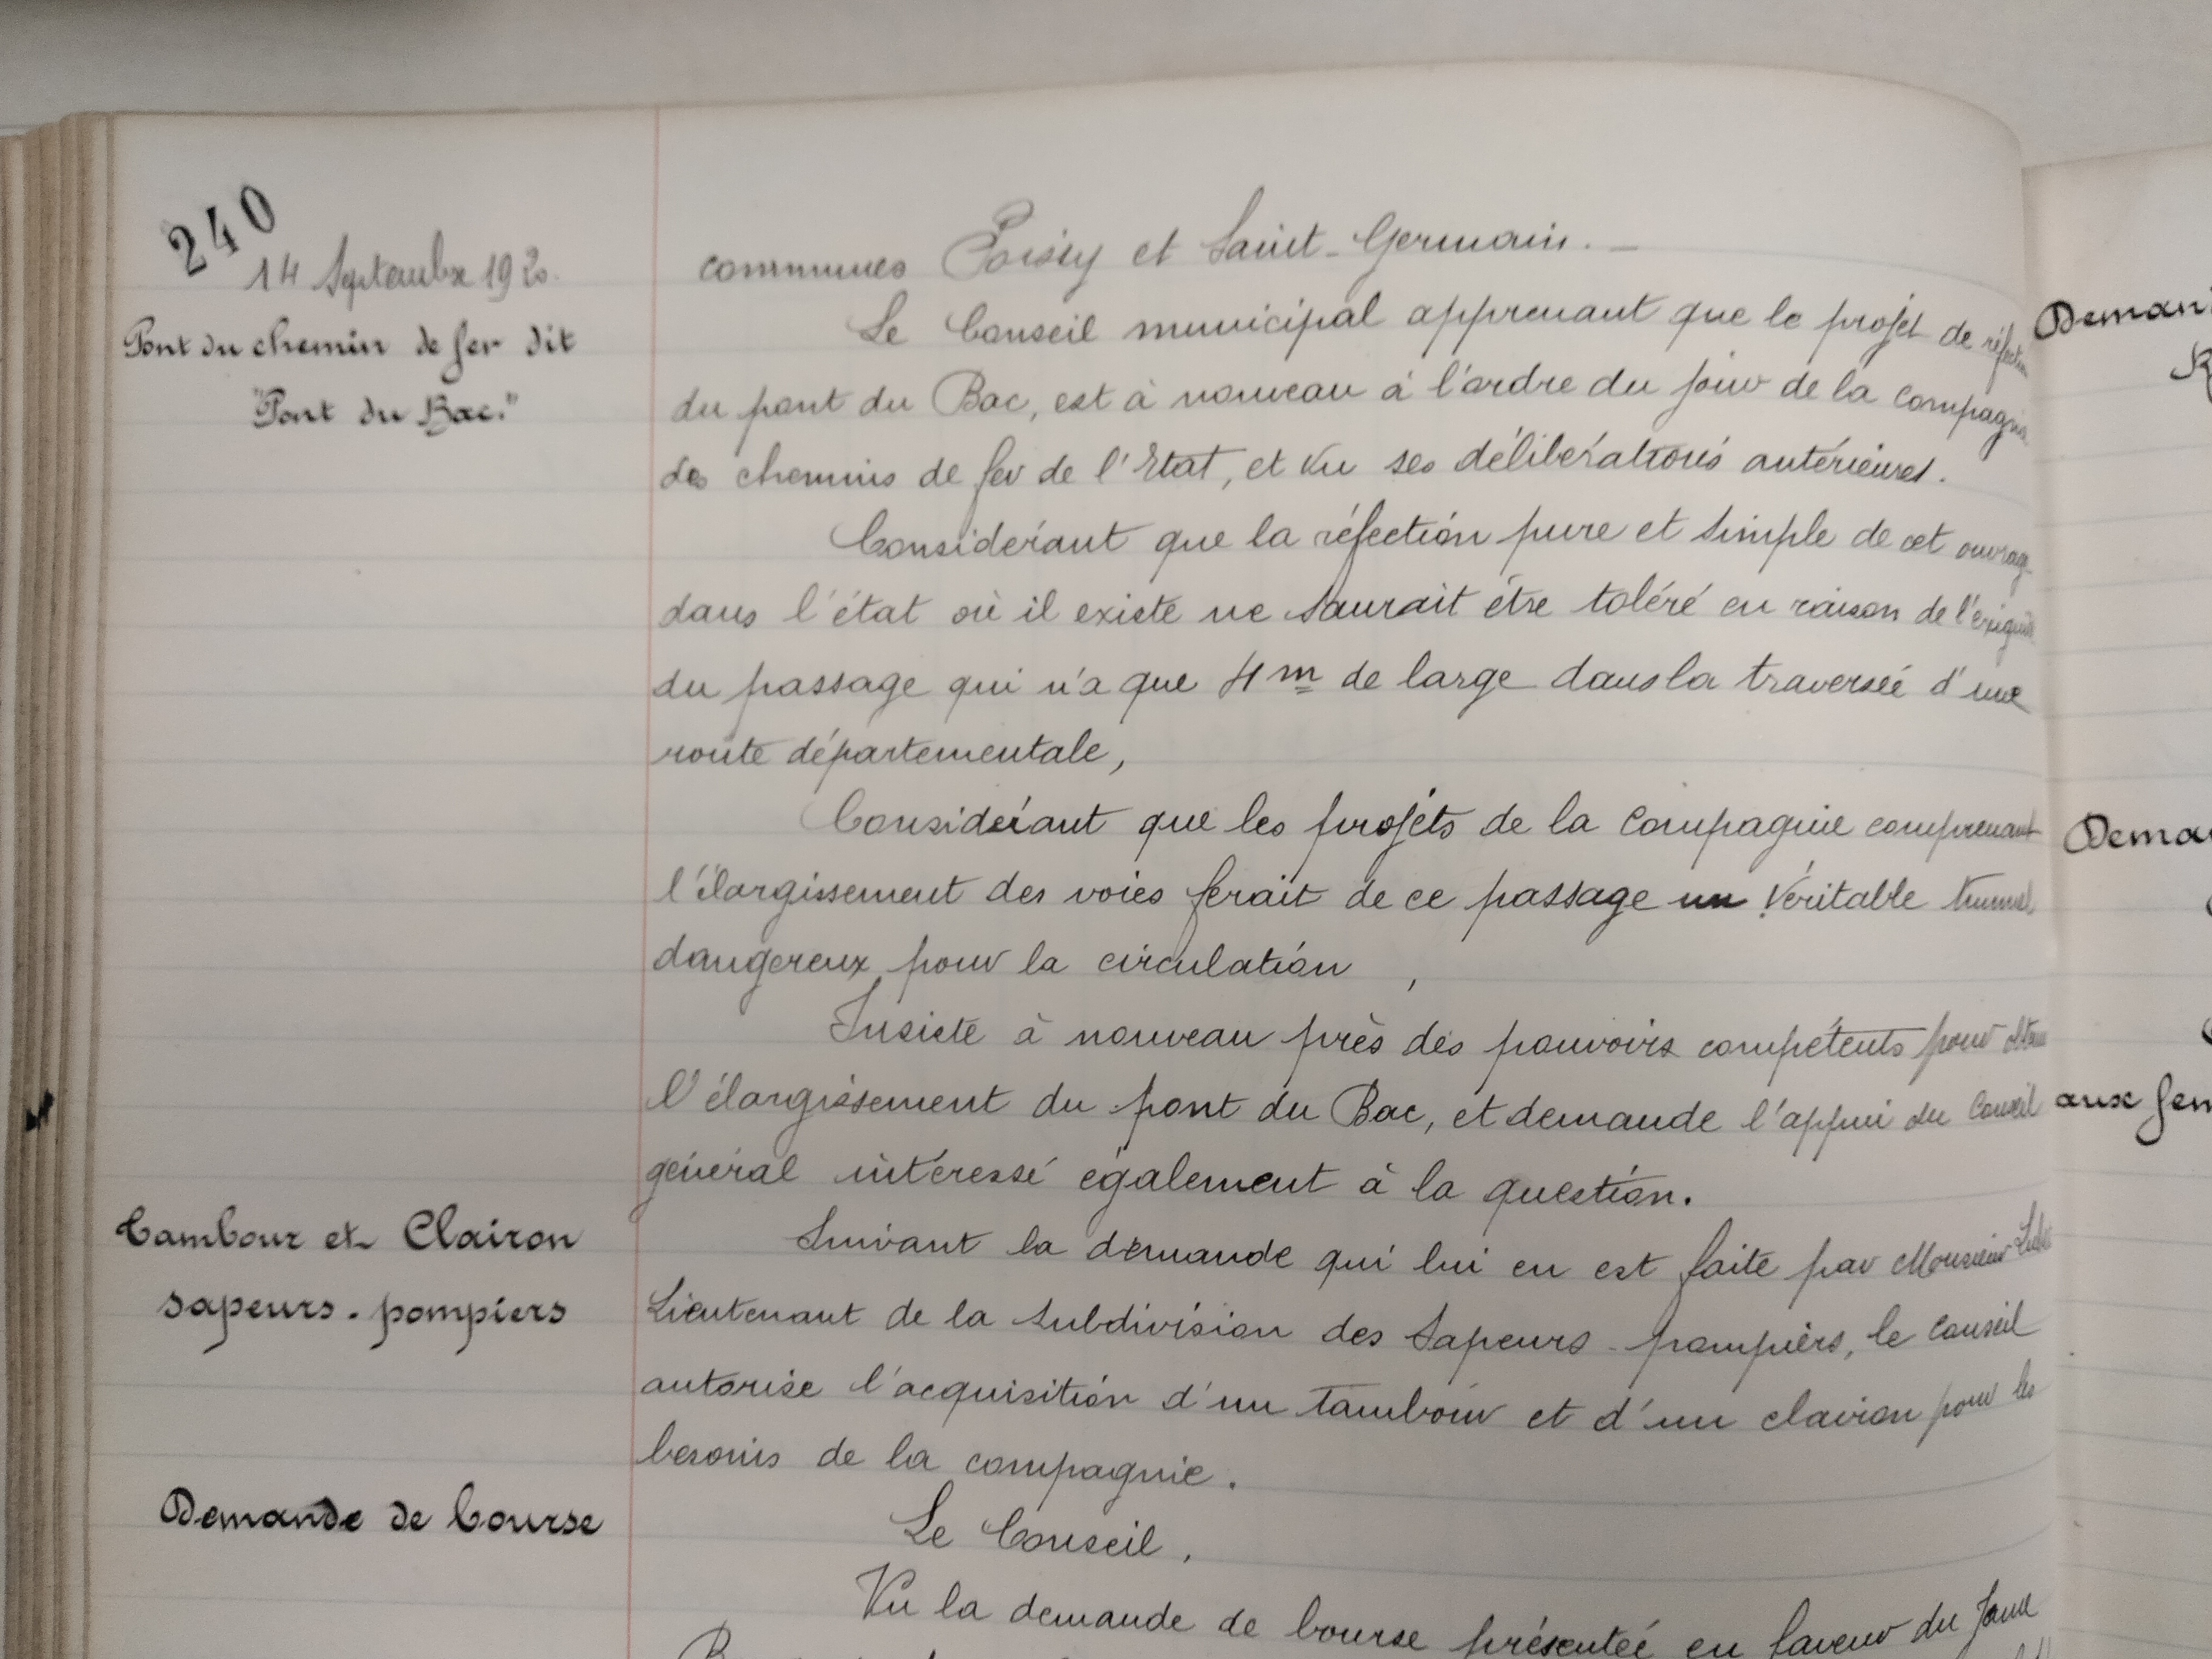 240
14 Septembre 1920.
Pont du chemin de fer dit
"Pont du Bac."
communes Poissy et Saint-Germain. —
Le Conseil municipal apprenant que le projet de réfection
du pont du Bac, est à nouveau à l'ordre du jour de la compagnie
des chemins de fer de l'Etat, et vu ses délibérations antérieures.
Considérant que la réfection pure et simple de cet ouvrage
dans l'état où il existe ne saurait être toléré en raison de l'exiguité
du passage qui n'a que 4m de large dans la traversée d'une
route départementale,
Considérant que les projets de la Compagnie comprenant
l'élargissement des voies ferait de ce passage un véritable tunnel
dangereux pour la circulation ,
Insiste à nouveau près des pouvoirs compétents pour obtenir
l'élargissement du pont du Bac, et demande l'appui du Conseil
général intéressé également à la question.
Tambour et Clairon
sapeurs-pompiers
Suivant la demande qui lui en est faite par Monsieur
Lieutenant de la subdivision des Sapeurs-pompiers, le Conseil
autorise l'acquisition d'un tambour et d'un clairon pour les
besoins de la compagnie.
Demande de bourse
Le Conseil,
Vu la demande de bourse présentée en faveur du jeune
Deman
Dema
aux fem